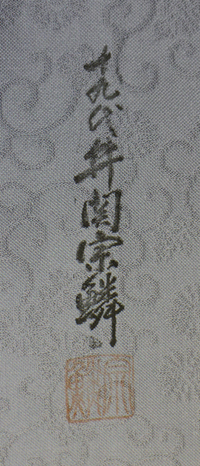 十九代井関宗鱗